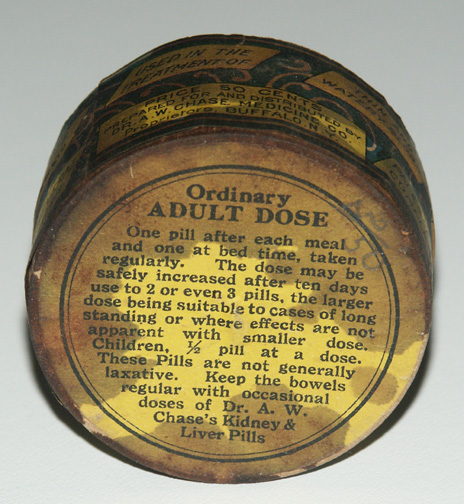 USED IN THE
TREATMENT OF
PRICE 50 CENTS
PREPARED FOR AND DISTRIBUTED BY
DR. A.W. CHASE MEDICINE CO.
Proprietors, BUFFALO N.Y.
Ordinary
ADULT DOSE
One pill after each meal
and one at bed time, taken
regularly. The dose may be
safely increased after ten days
use to 2 or even 3 pills, the larger
dose being suitable to cases of long
standing or where effects are not
apparent with smaller dose.
Children, ½ pill at a dose.
These Pills are not generally
laxative. Keep the bowels
regular with occasional
doses of Dr. A. W.
Chase's Kidney &
Liver Pills